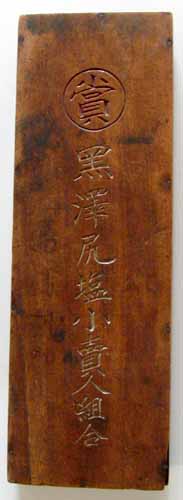 賞
黑澤尻塩小賣人組合